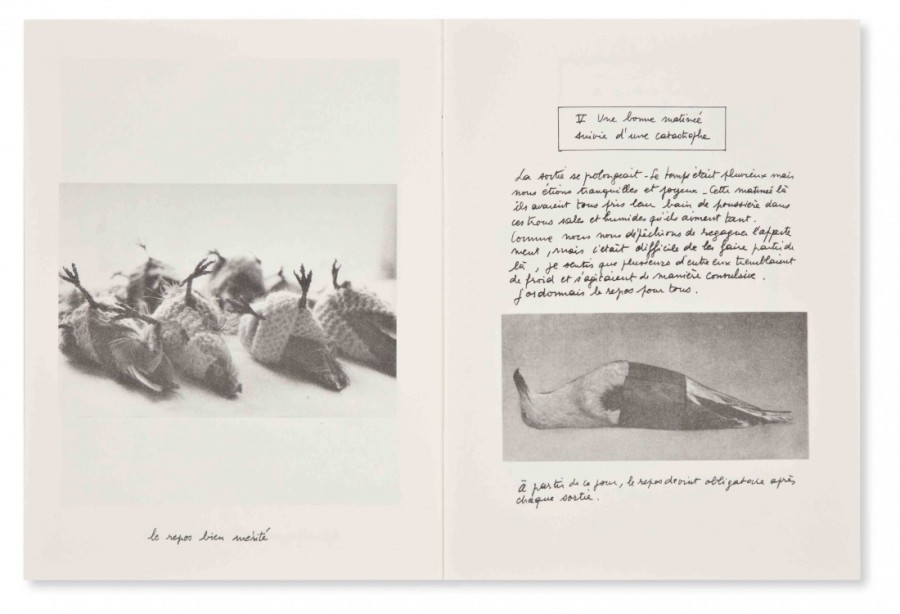 le repos bien mérité
IV Une bonne matineé
suivie d'une catastrophe
La sortie se polongeait - Le temps était pluvieux mais
nous étions tranquilles et joyeux - Cette matineé là
ils avaient tous pris leur bain de poussière dans
ces trous sales et humides qu'ils aiment tant.
Comme nous nous dépêchions de regagner l'apparte
ment, mais c'était difficile de les faire partir de
là, je sentis que plusieurs d'entre eux tremblaient
de froid et s'agitaient de manière convulsive.
J'ordonnais le repos pour tous.
À partir de ce jour, le repos devint obligatoire après
chaque sortie.